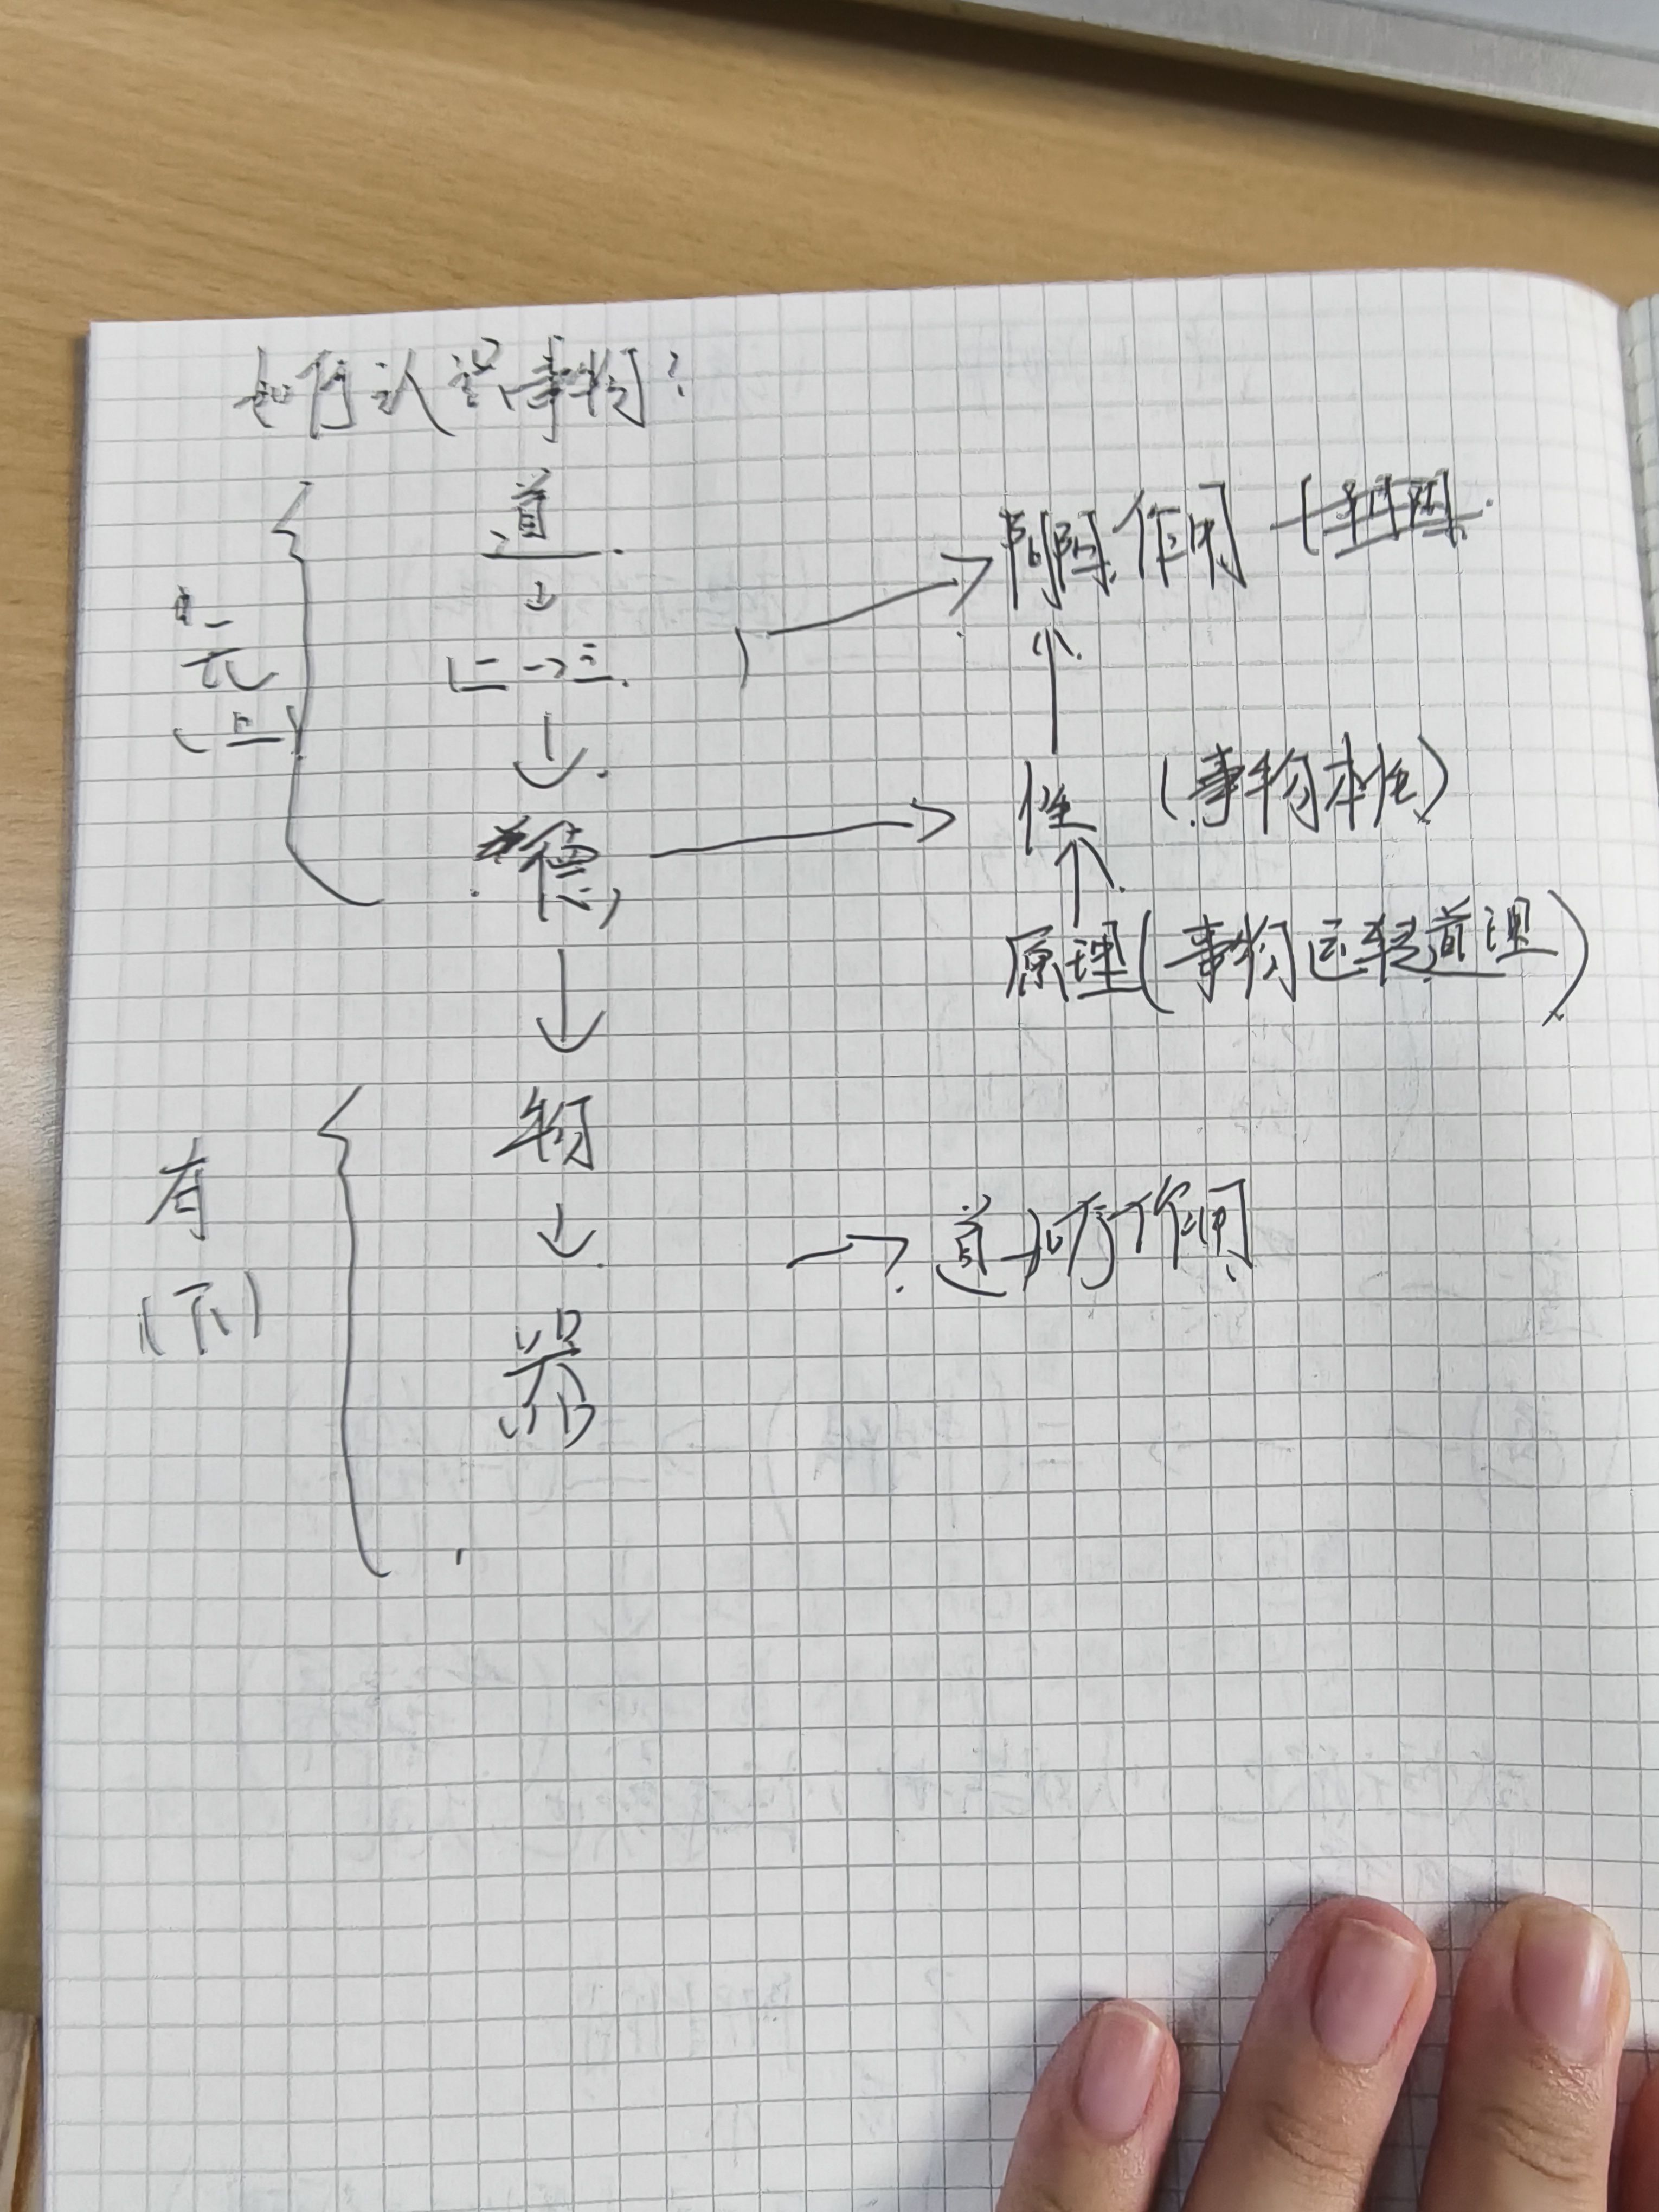 如何认识事物?
道
→
阴阳作用
无
(上)
(二→三)
↓
性 (事物本性)
德
原理(事物运转道理)
↓
有
物
(下)
↓
→ 道如何作用
器